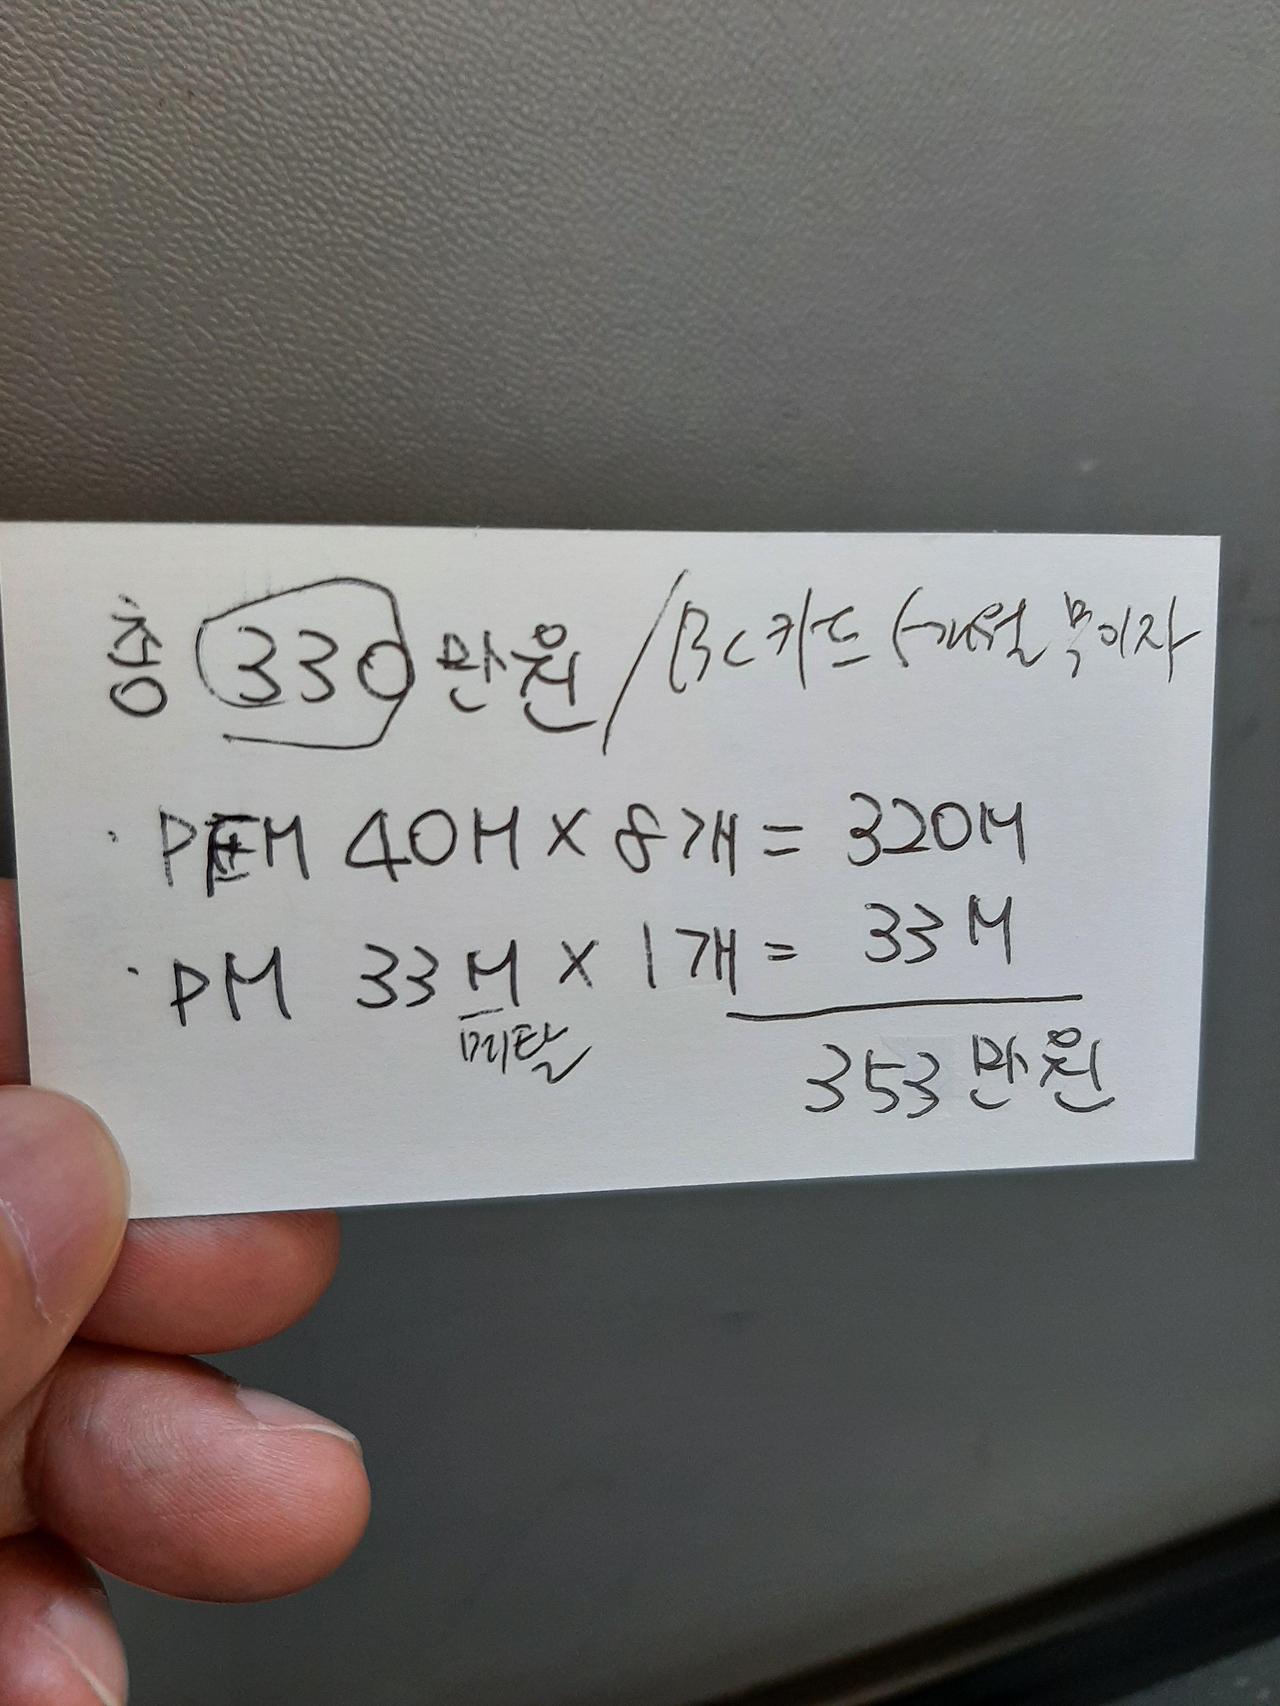 총 330만원 / BC카드 6개월 무이자
· PFM 40M × 8개 = 320M
· PM 33M × 1개 = 33M
메탈
353만원